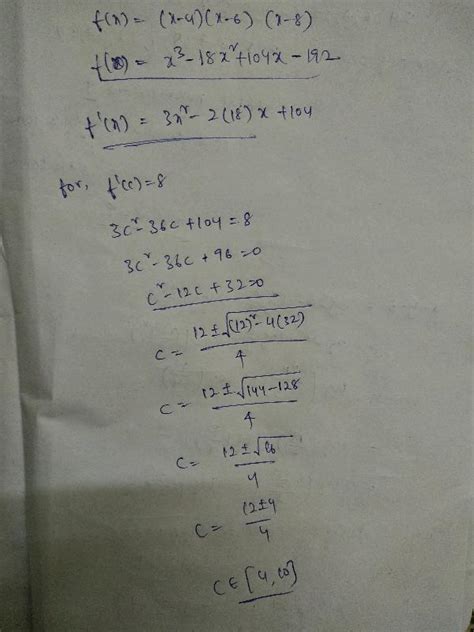 f(x) = (x-4)(x-6) (x-8)
f(x) = x³-18x²+104x-192
f'(x) = 3x²-2(18)x+104
for, f'(c)=8
3c²-36c+104=8
3c²-36c+96=0
c²-12c+32=0
c= 12±√(12)²-4(32) / 4
c= 12±√144-128 / 4
c= 12±√16 / 4
c= 12±4 / 4
c∈[4,10}